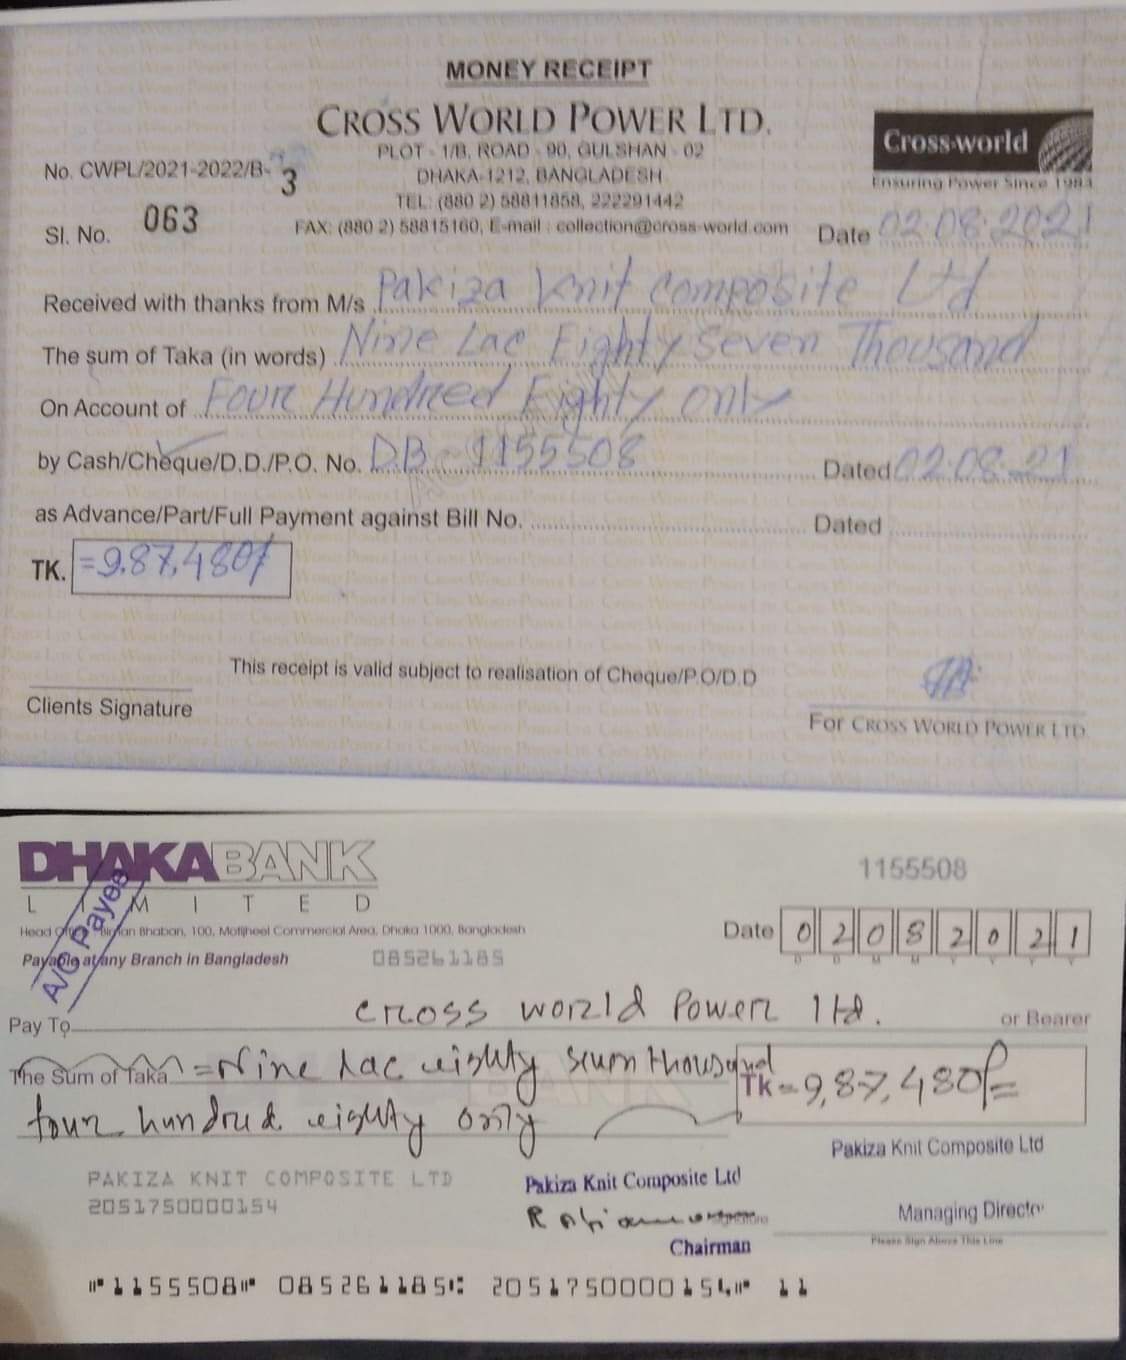 MONEY RECEIPT
CROSS WORLD POWER LTD.
PLOT - 1/B, ROAD - 90, GULSHAN - 02
DHAKA-1212, BANGLADESH
TEL: (880 2) 58811858, 222291442
FAX: (880 2) 58815160, E-mail : collection@cross-world.com
Cross-world
Ensuring Power Since 1983
No. CWPL/2021-2022/B-3
Sl. No. 063
Date 02.08.2021
Received with thanks from M/s Pakiza Knit Composite Ltd
The sum of Taka (in words) Nine Lac Eighty Seven Thousand
On Account of Four Hundred Eighty only
by Cash/Cheque/D.D./P.O. No. DB-1155508 Dated 02.08.21
as Advance/Part/Full Payment against Bill No. Dated
TK. =9,87,480/
This receipt is valid subject to realisation of Cheque/P.O/D.D
Clients Signature
For CROSS WORLD POWER LTD.
DHAKABANK
LIMITED
1155508
Head Office: Biman Bhaban, 100, Motijheel Commercial Area, Dhaka 1000, Bangladesh
Date 02082021
Payable at any Branch in Bangladesh 085261185
A/C Payee
Pay To cross world Power ltd. or Bearer
The Sum of Taka =Nine Lac eighty seven thousand
four hundred eighty only
Tk =9,87,480/=
Pakiza Knit Composite Ltd
PAKIZA KNIT COMPOSITE LTD
2051750000154
Pakiza Knit Composite Ltd
Chairman
Managing Director
Please Sign Above This Line
⑈1155508⑈ 085261185⑆ 2051750000154⑈ 11